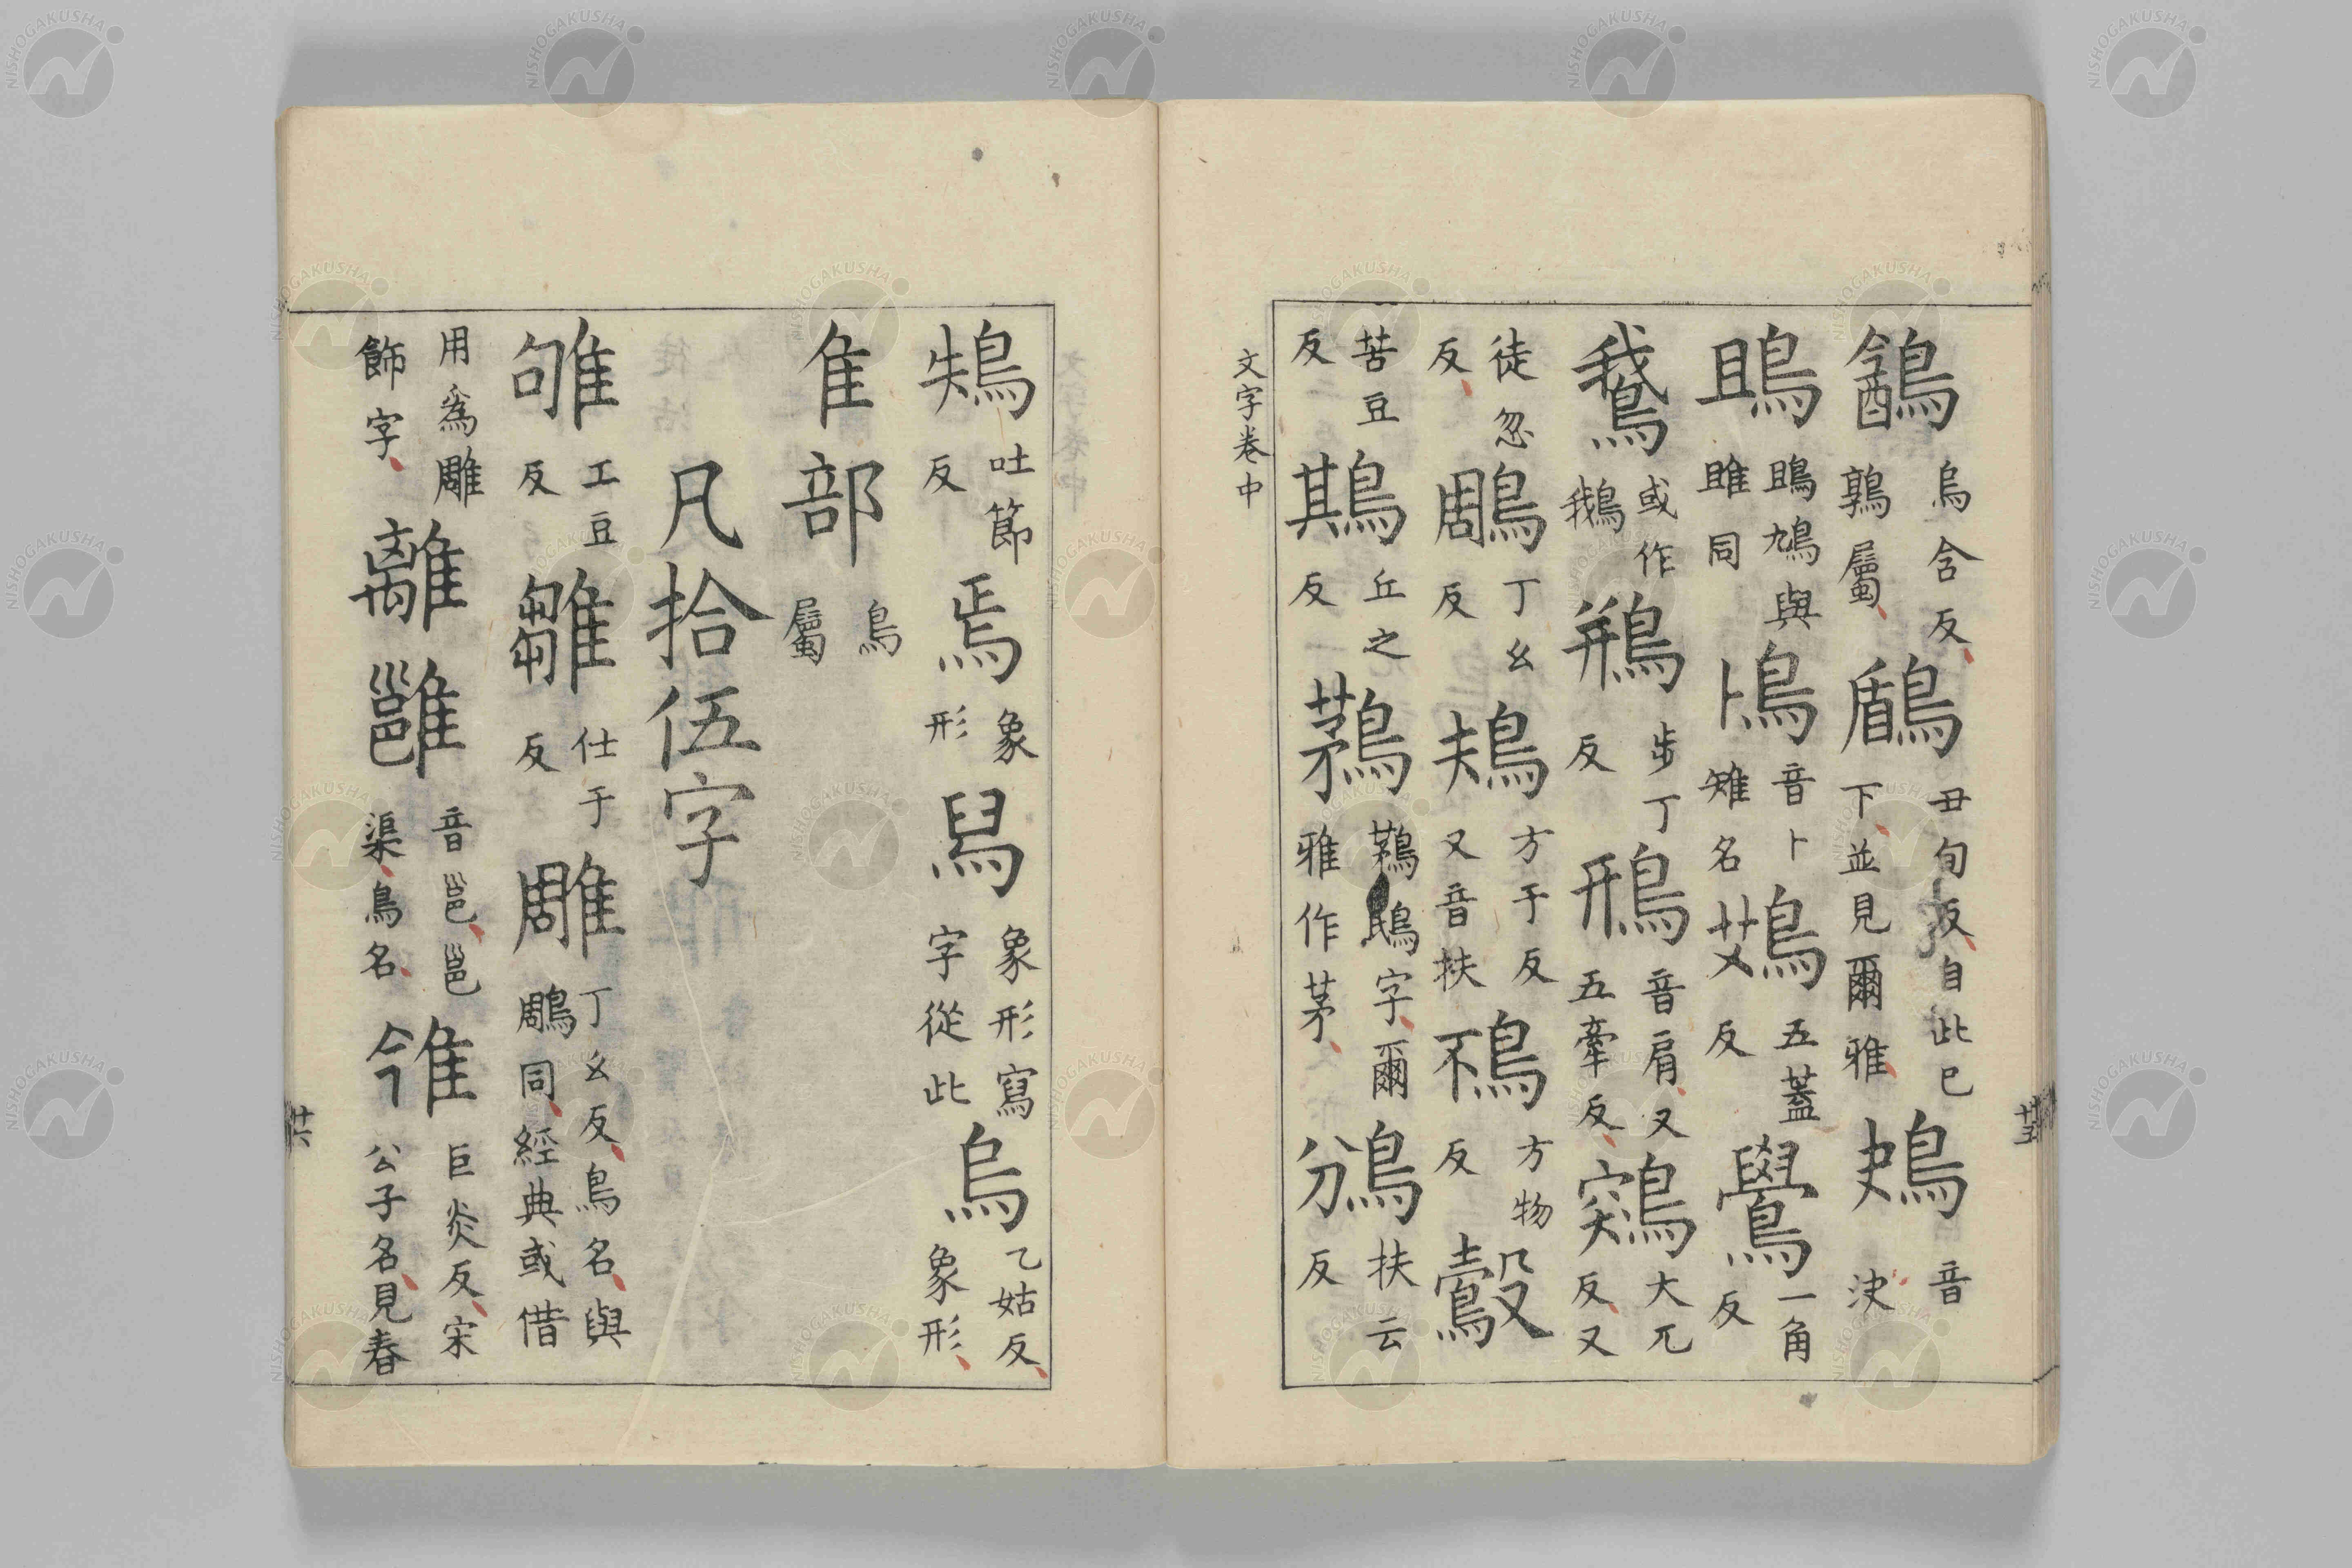 䳺烏含反鶉屬丑旬反自此已下並見爾雅鴃音決
鴡鴡鳩與雎同鳪音卜雉名鴱五蓋反鷽一角反
鵞或作鵝鵧步丁反鳽音肩又五牽反鶟大兀反又
徒忽反鵰丁幺反鳺方于反又音扶鴀方物反鷇
苦豆反䳢丘之反鶜鶜字爾雅作茅鳻扶云反
文字卷中
廿五
鴩吐節反焉象形舄象形寫字從此烏乙姑反象形
隹部鳥屬
凡拾伍字
雊工豆反雛仕于反雕丁幺反鳥名與鵰同經典或借
用爲雕飾字離雝音邕邕渠鳥名雂巨炎反宋公子名見春
廿六
NISHOGAKUSHA